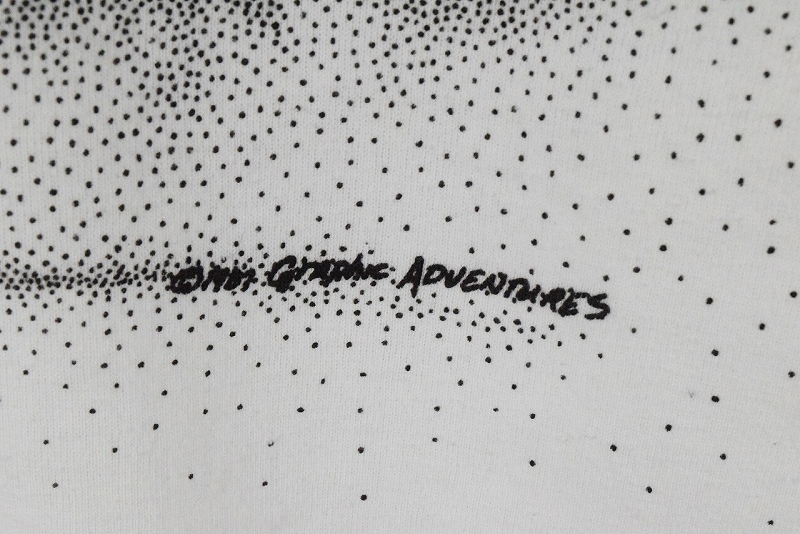 ©1987 GRAPHIC ADVENTURES